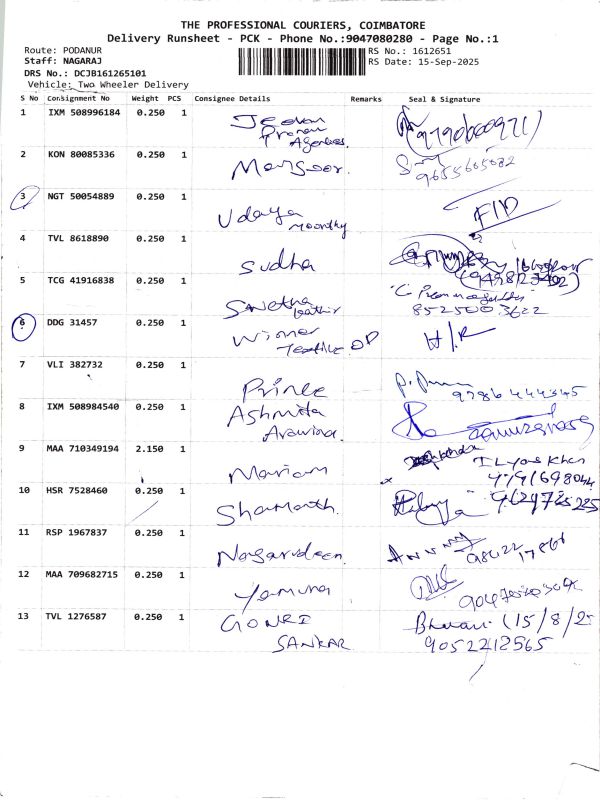 THE PROFESSIONAL COURIERS, COIMBATORE
Delivery Runsheet - PCK - Phone No.:9047080280 - Page No.:1
Route: PODANUR
Staff: NAGARAJ
DRS No.: DCJB161265101
Vehicle: Two Wheeler Delivery
RS No.: 1612651
RS Date: 15-Sep-2025
S No Consignment No Weight PCS Consignee Details Remarks Seal & Signature
1 IXM 508996184 0.250 1
Agencies
2 KON 80085336 0.250 1 Mansoor.
9655665682
3 NGT 50054889 0.250 1 Udaya
Moorthy
4 TVL 8618890 0.250 1 Sudha
5 TCG 41916838 0.250 1
8525003622
6 DDG 31457 0.250 1 Winner
Textile OP H/R
7 VLI 382732 0.250 1 Prince
9786444345
8 IXM 508984540 0.250 1 Ashmita
9 MAA 710349194 2.150 1 Mariam ILyas Khan
10 HSR 7528460 0.250 1
11 RSP 1967837 0.250 1 Nagarudeen.
12 MAA 709682715 0.250 1 Yamuna
13 TVL 1276587 0.250 1 GOWRI
SANKAR
9052212565